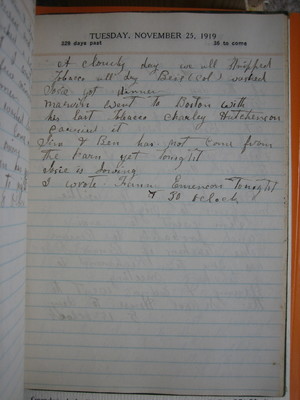 TUESDAY, NOVEMBER 25, 1919
329 days past 36 to come
A cloudy day we all stripped
Tobacco all day Bristol worked
Josie got dinner
Maurice went to Boston with
his last Tobacco Charley Hutchenson
carried it
Jim & Ben has not come from
the barn yet tonight
Josie is sewing
I wrote Fannie Emerson Tonight
7 30 oclock